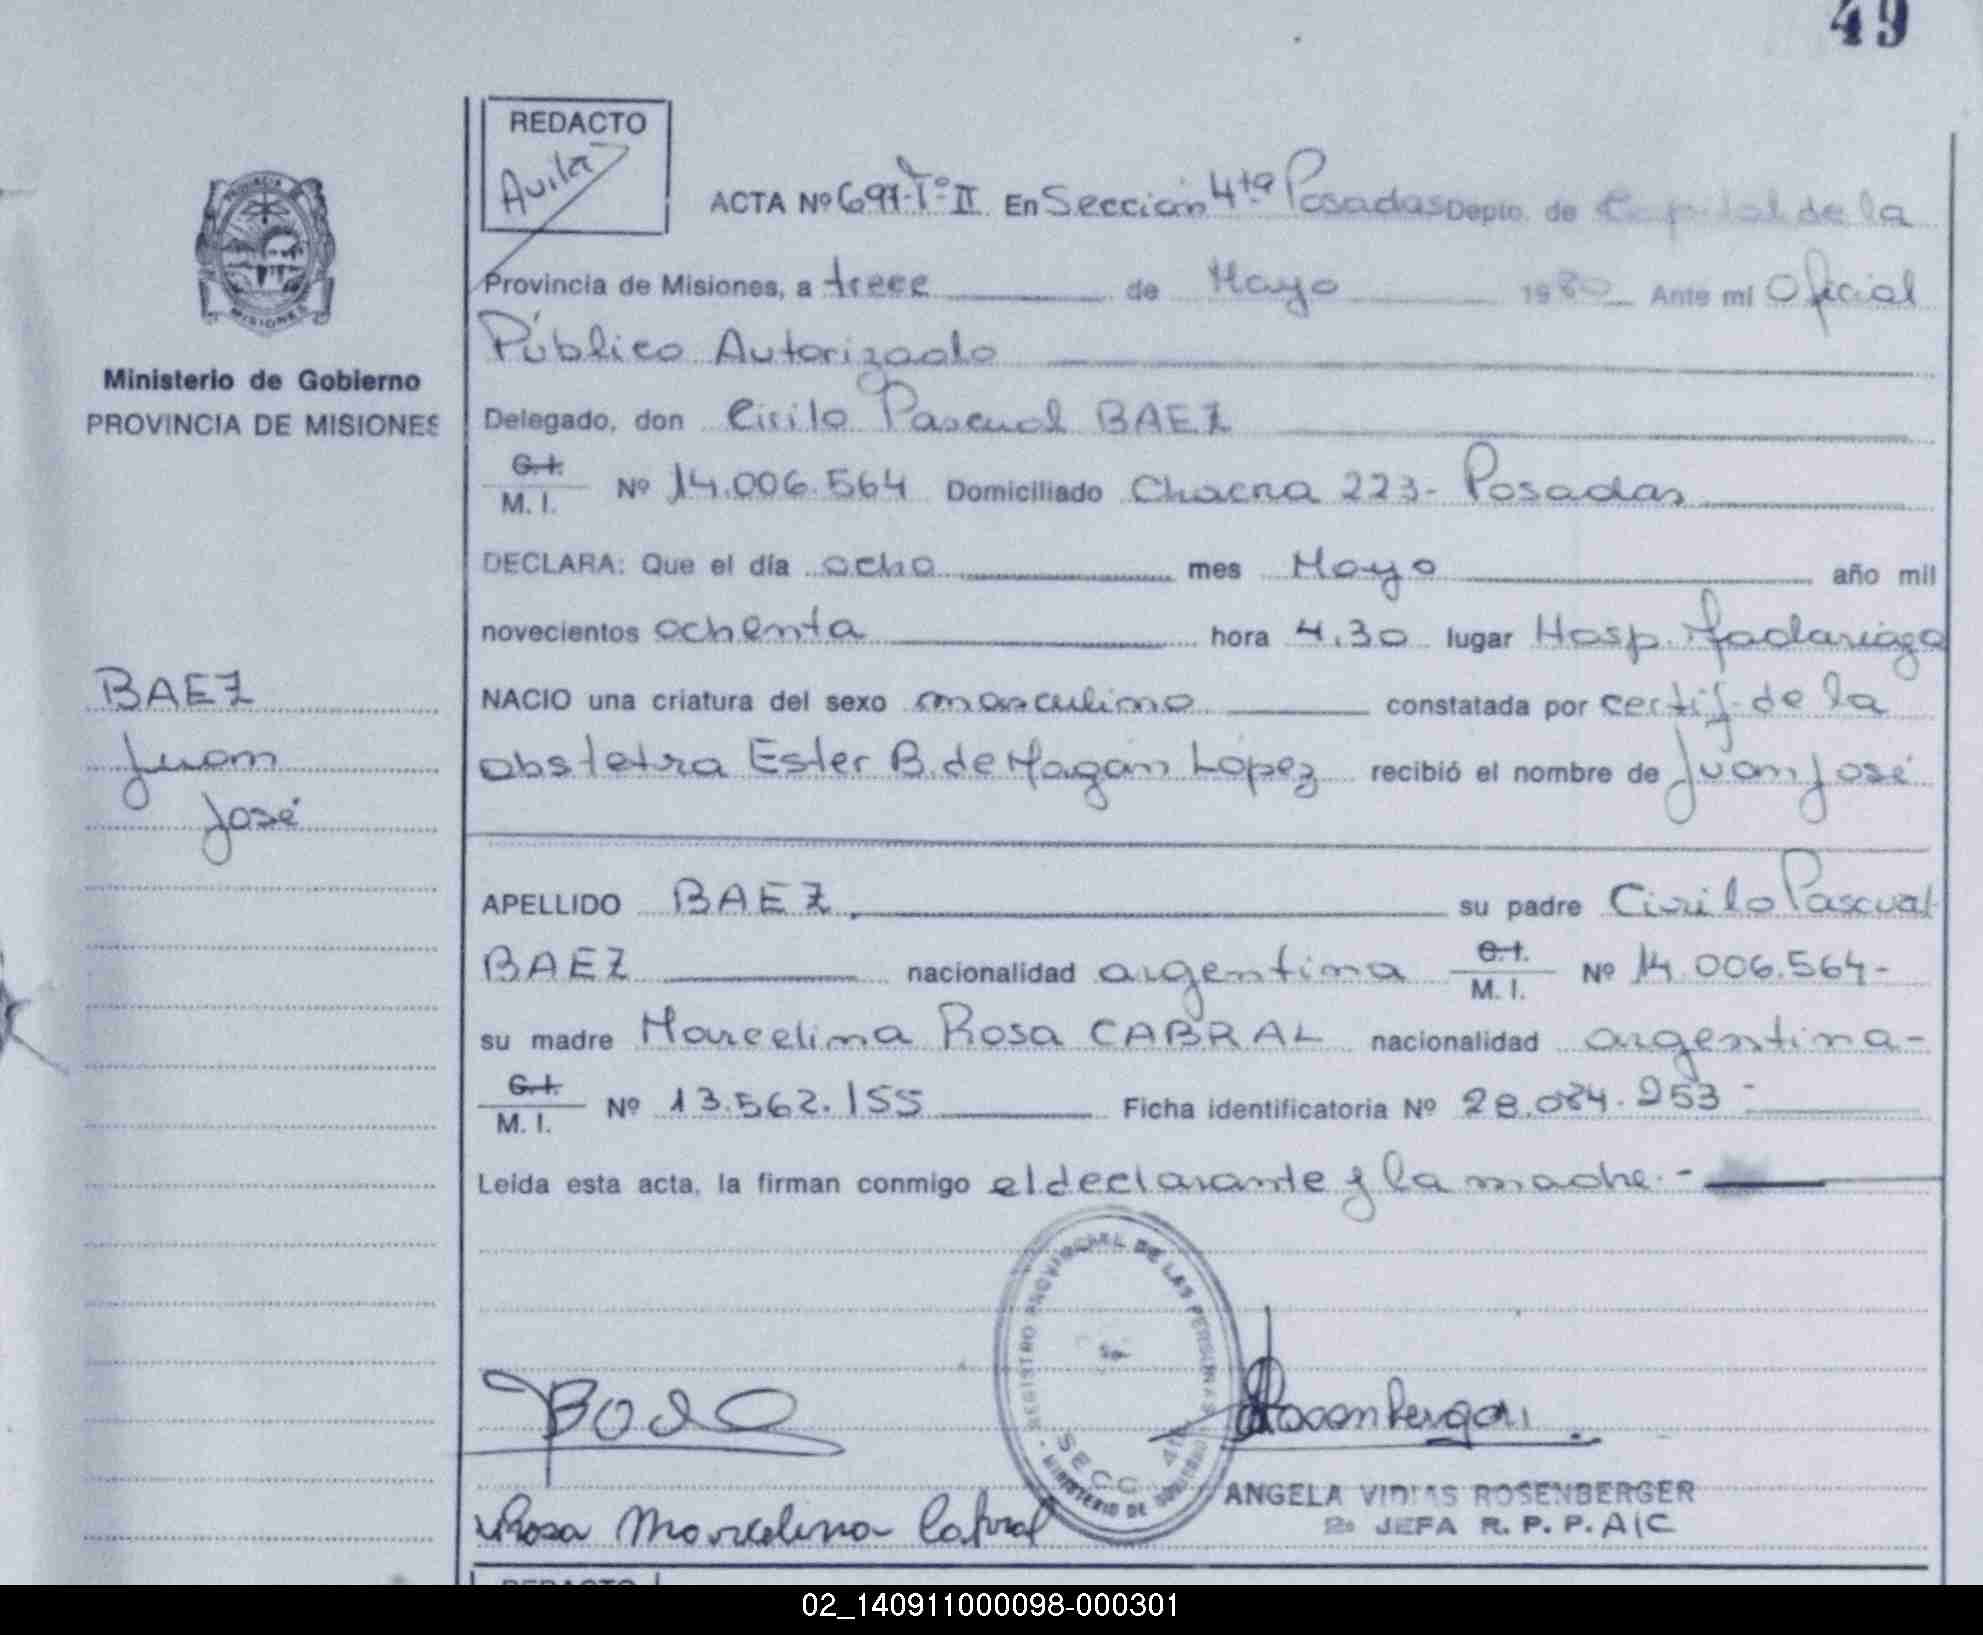 49
REDACTO
Avila
ACTA Nº 691-Tº-II En Sección 4ta Posadas Depto. de Capital de la
Provincia de Misiones, a trece de Mayo 1980 Ante mí Oficial
Público Autorizado
Delegado, don Cirilo Pascual BAEZ
C.I.
M. I. Nº 14.006.564 Domiciliado Chacra 223- Posadas
DECLARA: Que el día ocho mes Mayo año mil
novecientos ochenta hora 4.30 lugar Hosp. Madariaga
NACIO una criatura del sexo masculino constatada por certif. de la
obstetra Ester B. de Magan López recibió el nombre de Juan José
APELLIDO BAEZ su padre Cirilo Pascual
BAEZ nacionalidad argentina C.I.
M. I. Nº 14.006.564-
su madre Marcelina Rosa CABRAL nacionalidad argentina-
C.I.
M. I. Nº 13.562.155 Ficha identificatoria Nº 28.084.253-
Leída esta acta, la firman conmigo el declarante y la madre.-
PROVINCIA
MISIONES
Ministerio de Gobierno
PROVINCIA DE MISIONES
BAEZ
Juan
José
REGISTRO PROVINCIAL DE LAS PERSONAS
SECC. 4ta
MINISTERIO DE GOBIERNO
Rosa Marcelina Cabral
ANGELA VIDIAS ROSENBERGER
2º JEFA R. P. P. A/C
REDACTO
02_140911000098-000301